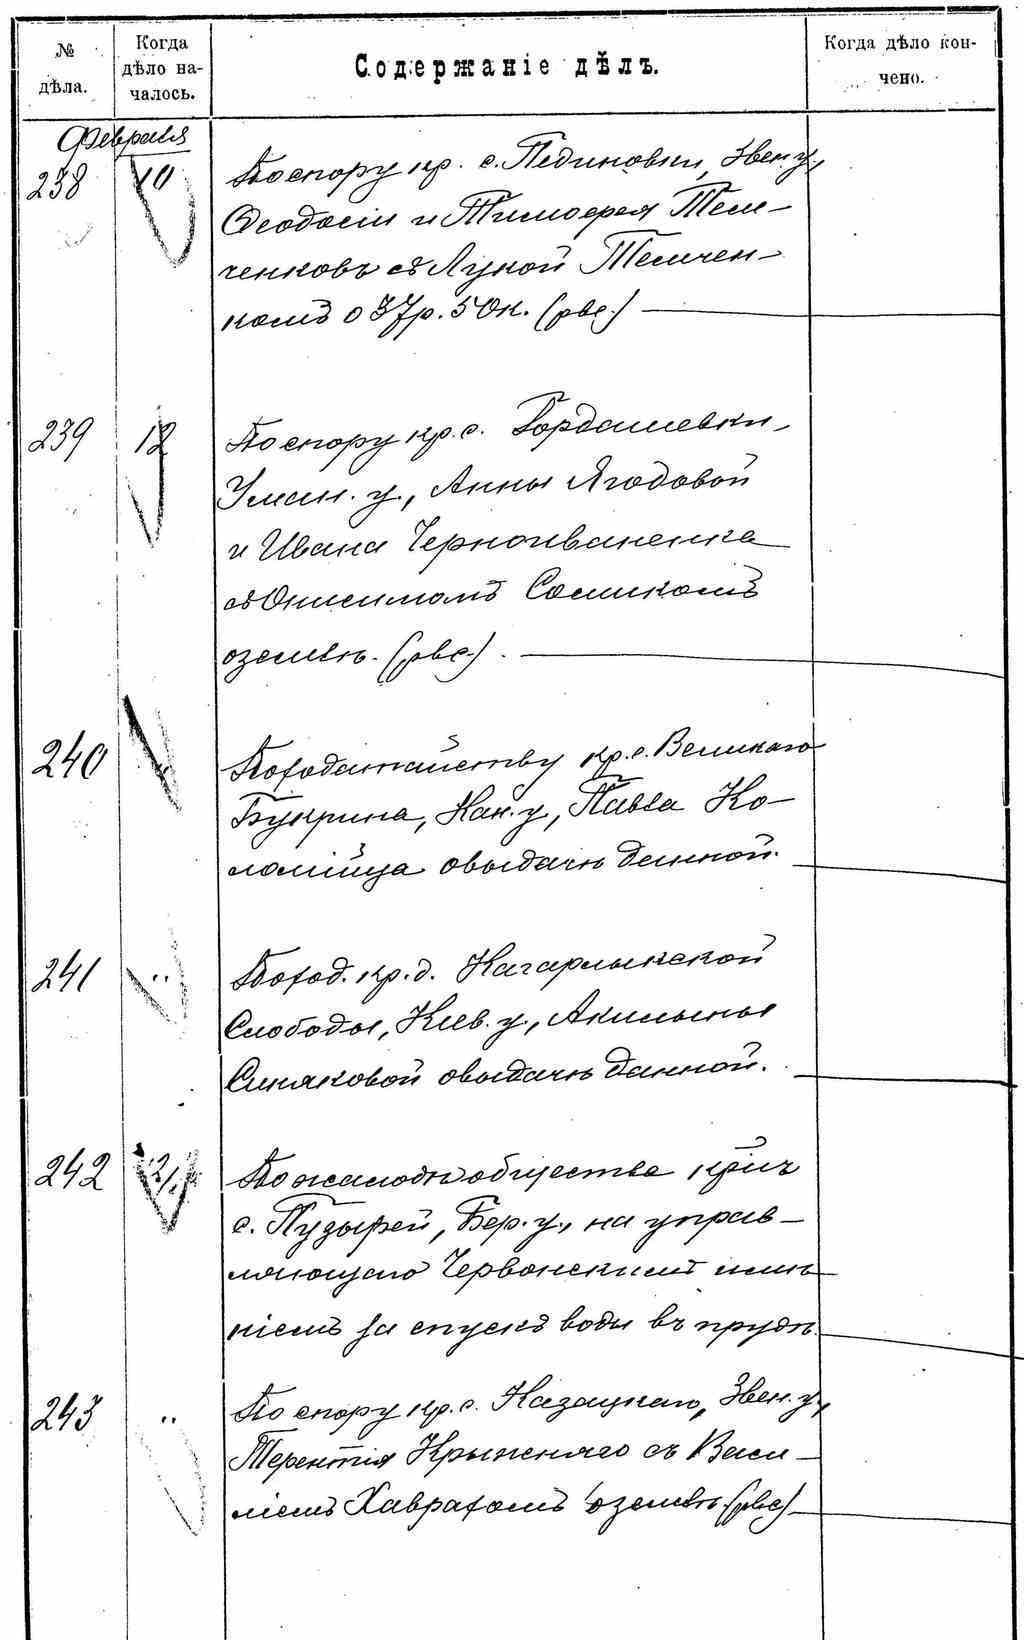 № дѣла.
Когда дѣло началось.
Содержаніе дѣлъ.
Когда дѣло кончено.
Февраля
238 10 По спору кр. с. Пединовки, Звен. у.,
Феодосіи и Тимофея Тем-
ченковъ съ Лукой Темчен-
комъ о 37 р. 50 к. (рвс.)
239 12 По спору кр. с. Бордашевки,
Уман. у., Анны Ягодовой
и Ивана Черноиваненка
съ Онисимомъ Сомикомъ
о землѣ. (рвс.).
240 По ходатайству кр. с. Великаго
Букрина, Кан. у., Павла Ко-
ломійца о выдачѣ данной.
241 ,, По ход. кр. д. Кагарлыкской
Слободы, Кіев. у., Акилины
Синяковой о выдачѣ данной.
242 21 По жалобѣ общества кр.
с. Пузырей, Бер. у., на управ-
ляющаго Червонскимъ имѣ-
ніемъ за спускъ воды въ прудѣ.
243 ,, По спору кр. с. Казацкаго, Звен. у.,
Терентія Крыжняго съ Васи-
ліемъ Хаврахомъ о землѣ. (рвс)